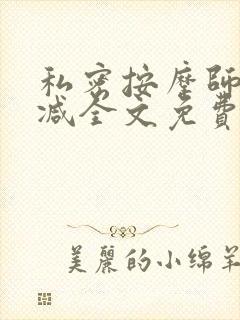 私密按摩師
减全文免費
美麗的小绵羊